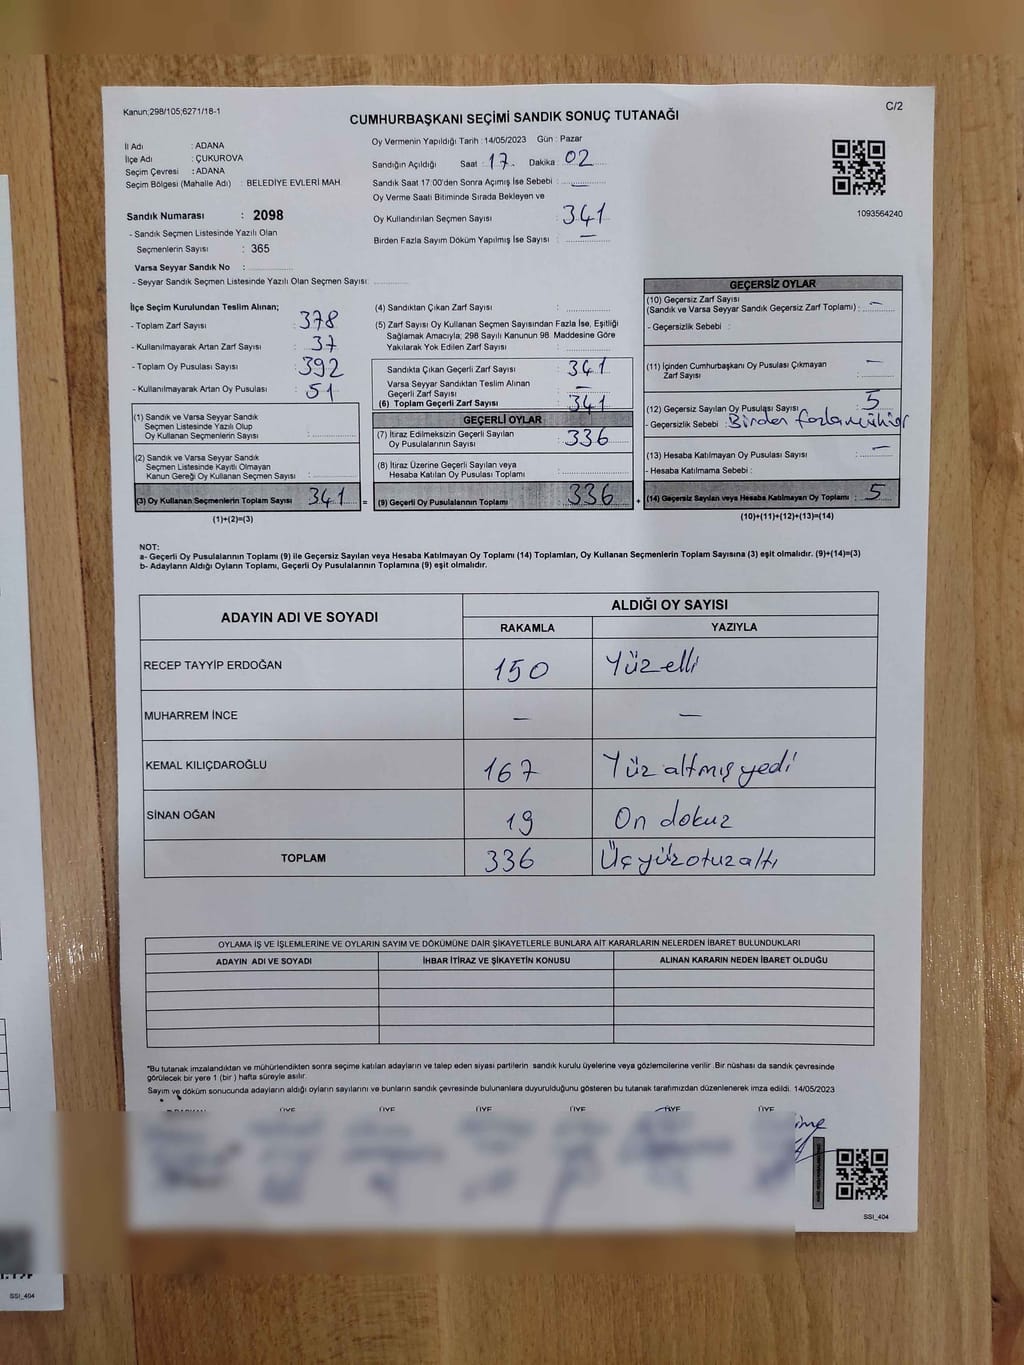 Kanun;298/105;6271/18-1
C/2
CUMHURBAŞKANI SEÇİMİ SANDIK SONUÇ TUTANAĞI
İl Adı : ADANA
İlçe Adı : ÇUKUROVA
Seçim Çevresi : ADANA
Seçim Bölgesi (Mahalle Adı) : BELEDİYE EVLERİ MAH.
Sandık Numarası : 2098
- Sandık Seçmen Listesinde Yazılı Olan
Seçmenlerin Sayısı : 365
Varsa Seyyar Sandık No :
- Seyyar Sandık Seçmen Listesinde Yazılı Olan Seçmen Sayısı:
Oy Vermenin Yapıldığı Tarih : 14/05/2023 Gün : Pazar
Sandığın Açıldığı Saat : 17 Dakika : 02
Sandık Saat 17:00'den Sonra Açımış İse Sebebi : —
Oy Verme Saati Bitiminde Sırada Bekleyen ve
Oy Kullandırılan Seçmen Sayısı : 341
Birden Fazla Sayım Döküm Yapılmış İse Sayısı : —
1093564240
İlçe Seçim Kurulundan Teslim Alınan;
- Toplam Zarf Sayısı : 378
- Kullanılmayarak Artan Zarf Sayısı : 37
- Toplam Oy Pusulası Sayısı : 392
- Kullanılmayarak Artan Oy Pusulası : 51
(1) Sandık ve Varsa Seyyar Sandık
Seçmen Listesinde Yazılı Olup
Oy Kullanan Seçmenlerin Sayısı :
(2) Sandık ve Varsa Seyyar Sandık
Seçmen Listesinde Kayıtlı Olmayan
Kanun Gereği Oy Kullanan Seçmen Sayısı :
(3) Oy Kullanan Seçmenlerin Toplam Sayısı : 341 =
(1)+(2)=(3)
(4) Sandıktan Çıkan Zarf Sayısı :
(5) Zarf Sayısı Oy Kullanan Seçmen Sayısından Fazla İse, Eşitliği
Sağlamak Amacıyla; 298 Sayılı Kanunun 98. Maddesine Göre
Yakılarak Yok Edilen Zarf Sayısı :
Sandıkta Çıkan Geçerli Zarf Sayısı : 341
Varsa Seyyar Sandıktan Teslim Alınan
Geçerli Zarf Sayısı : —
(6) Toplam Geçerli Zarf Sayısı : 341
GEÇERLİ OYLAR
(7) İtiraz Edilmeksizin Geçerli Sayılan
Oy Pusulalarının Sayısı : 336
(8) İtiraz Üzerine Geçerli Sayılan veya
Hesaba Katılan Oy Pusulası Toplamı :
(9) Geçerli Oy Pusulalarının Toplamı : 336 +
GEÇERSİZ OYLAR
(10) Geçersiz Zarf Sayısı
(Sandık ve Varsa Seyyar Sandık Geçersiz Zarf Toplamı) : —
- Geçersizlik Sebebi :
(11) İçinden Cumhurbaşkanı Oy Pusulası Çıkmayan
Zarf Sayısı : —
(12) Geçersiz Sayılan Oy Pusulası Sayısı : 5
- Geçersizlik Sebebi : Birden fazla mühür
(13) Hesaba Katılmayan Oy Pusulası Sayısı : —
- Hesaba Katılmama Sebebi :
(14) Geçersiz Sayılan veya Hesaba Katılmayan Oy Toplamı : 5
(10)+(11)+(12)+(13)=(14)
NOT:
a- Geçerli Oy Pusulalarının Toplamı (9) ile Geçersiz Sayılan veya Hesaba Katılmayan Oy Toplamı (14) Toplamları, Oy Kullanan Seçmenlerin Toplam Sayısına (3) eşit olmalıdır. (9)+(14)=(3)
b- Adayların Aldığı Oyların Toplamı, Geçerli Oy Pusulalarının Toplamına (9) eşit olmalıdır.
ADAYIN ADI VE SOYADI
ALDIĞI OY SAYISI
RAKAMLA YAZIYLA
RECEP TAYYİP ERDOĞAN 150 Yüz elli
MUHARREM İNCE — —
KEMAL KILIÇDAROĞLU 167 Yüz altmış yedi
SİNAN OĞAN 19 On dokuz
TOPLAM 336 Üç yüz otuz altı
OYLAMA İŞ VE İŞLEMLERİNE VE OYLARIN SAYIM VE DÖKÜMÜNE DAİR ŞİKAYETLERLE BUNLARA AİT KARARLARIN NELERDEN İBARET BULUNDUKLARI
ADAYIN ADI VE SOYADI İHBAR İTİRAZ VE ŞİKAYETİN KONUSU ALINAN KARARIN NEDEN İBARET OLDUĞU
*Bu tutanak imzalandıktan ve mühürlendikten sonra seçime katılan adayların ve talep eden siyasi partilerin sandık kurulu üyelerine veya gözlemcilerine verilir. Bir nüshası da sandık çevresinde
görülecek bir yere 1 (bir) hafta süreyle asılır.
Sayım ve döküm sonucunda adayların aldığı oyların sayılarını ve bunların sandık çevresinde bulunanlara duyurulduğunu gösteren bu tutanak tarafımızdan düzenlenerek imza edildi. 14/05/2023
ÜYE ÜYE ÜYE ÜYE ÜYE ÜYE
SSİ_404
SSİ_404